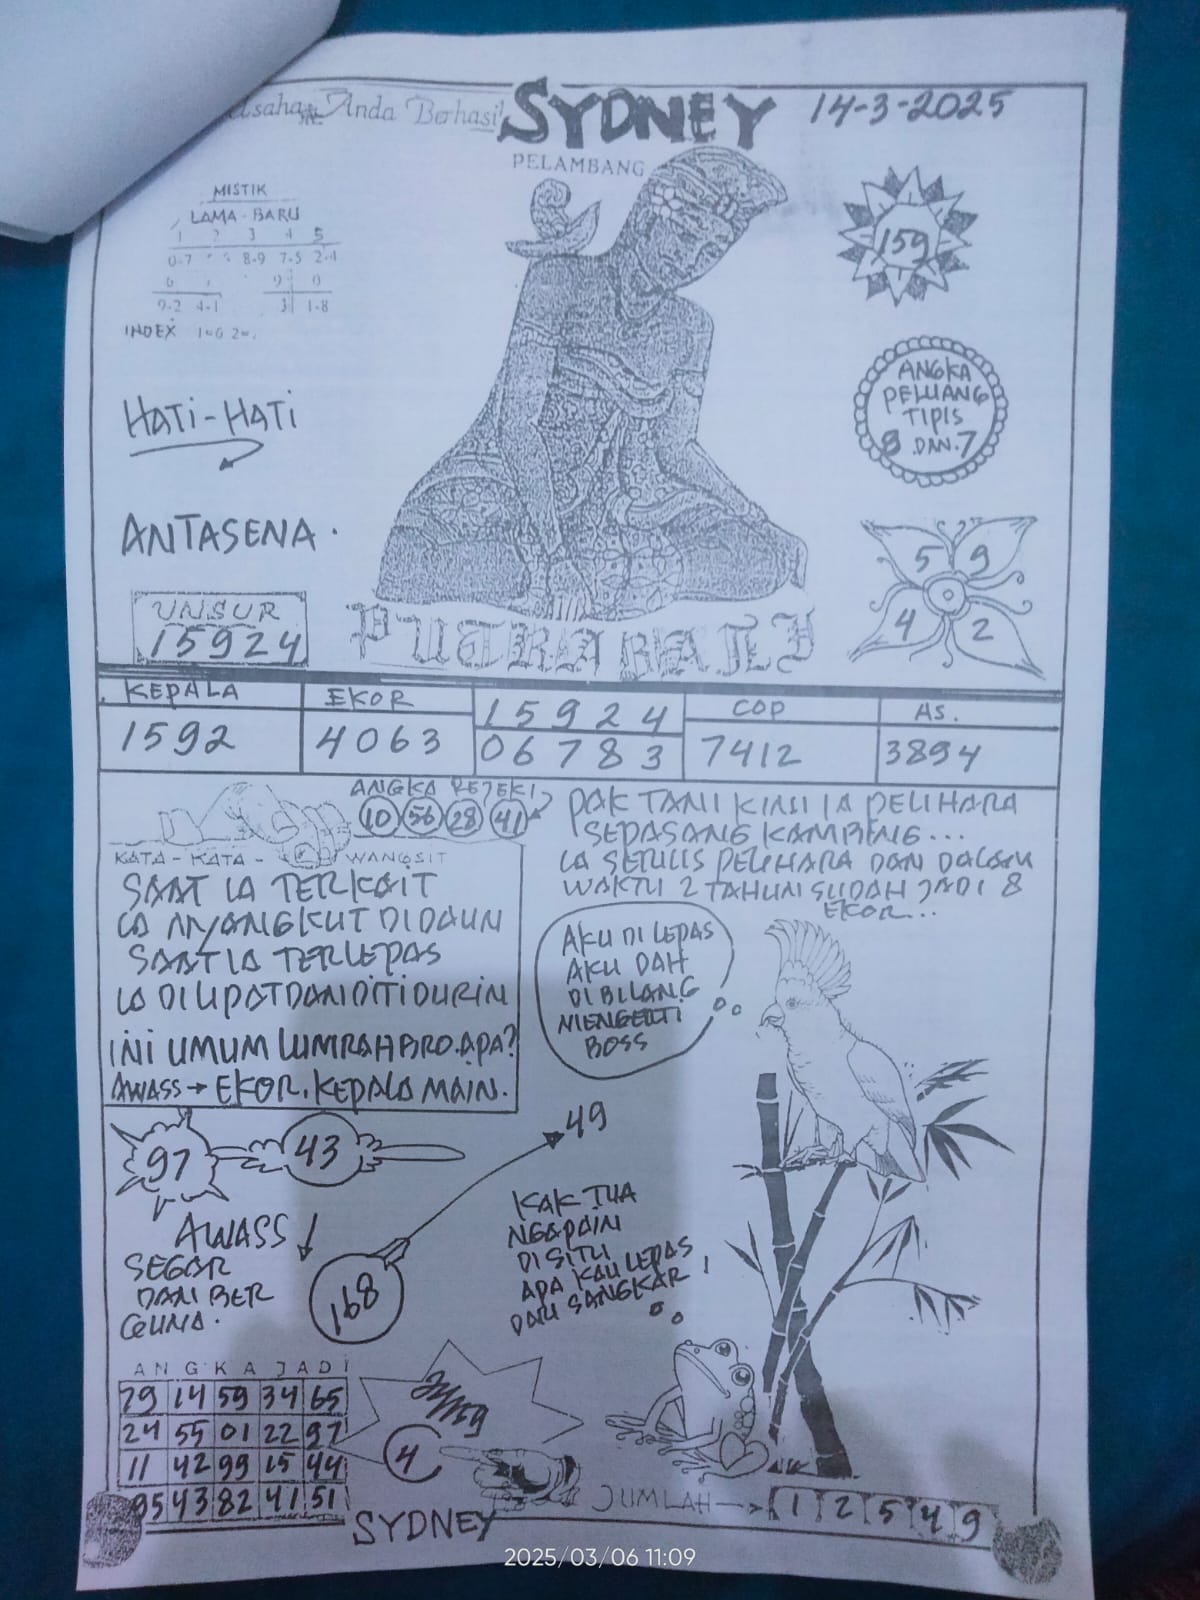 Anda Berhasil
SYDNEY
14-3-2025
PELAMBANG
MISTIK
LAMA - BARU
1 2 3 4 5
0-7 8-9 7-5 2-4
6 9 0
9-2 4-1 3 1-8
INDEX
159
HATI-HATI
ANGKA
PELUANG
TIPIS
8 DAN.7
ANTASENA.
5 9
4 2
UNSUR
15924
PUTRA BALI
KEPALA EKOR 15924 COP AS.
1592 4063 06783 7412 3894
ANGKA REJEKI
10 56 28 41
PAK TANI KINI IA PELIHARA
SEPASANG KAMBING...
IA SERIUS PELIHARA DAN DALAM
WAKTU 2 TAHUN SUDAH JADI 8
EKOR...
KATA-KATA-WANGSIT
SAAT IA TERKAIT
IA NYANGKUT DIDAUN
SAAT IA TERLEPAS
IA DILIPAT DAN DITIDURIN
INI UMUM LUMRAH BRO.APA?
AWASS → EKOR.KEPALA MAIN.
AKU DI LEPAS
AKU DAH
DIBILANG
MENGERTI
BOSS
97 43
49
AWASS
SEGAR
DAN BER
GUNA.
168
KAK TUA
NGAPAIN
DISITU
APA KAU LEPAS
DARI SANGKAR!
ANGKA JADI
29 14 59 34 65
24 55 01 22 97
11 42 99 15 44
95 43 82 41 51
4
SYDNEY
JUMLAH → 1 2 5 4 9
2025/03/06 11:09